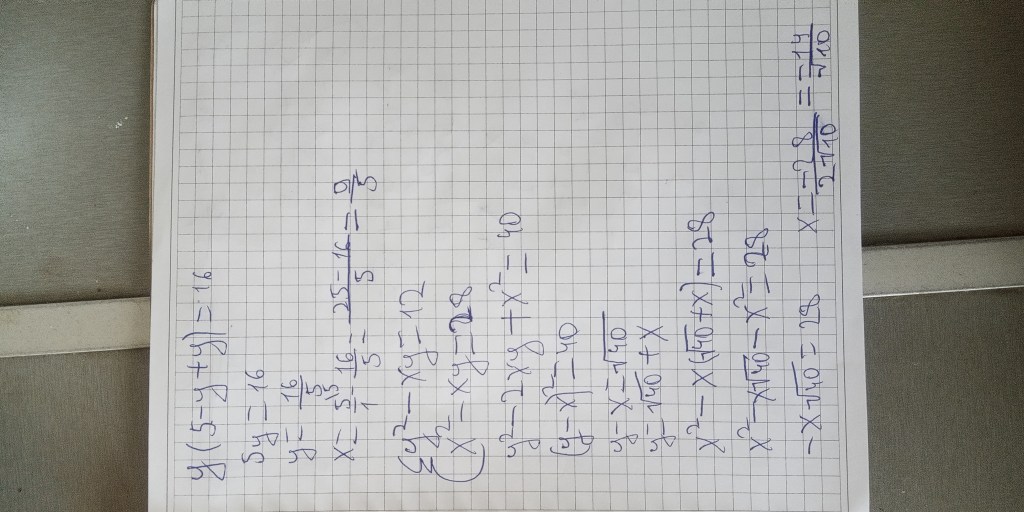 y(5-y+y)=16
5y=16
y=16/5
x=5/1-16/5=25-16/5=9/5
{y²-xy=12
x²-xy=28
y²-2xy+x²=40
(y-x)²=40
y-x=√40
y=√40+x
x²-x(√40+x)=28
x²-x√40-x²=28
-x√40=28 x=-28/2√10=-14/√10